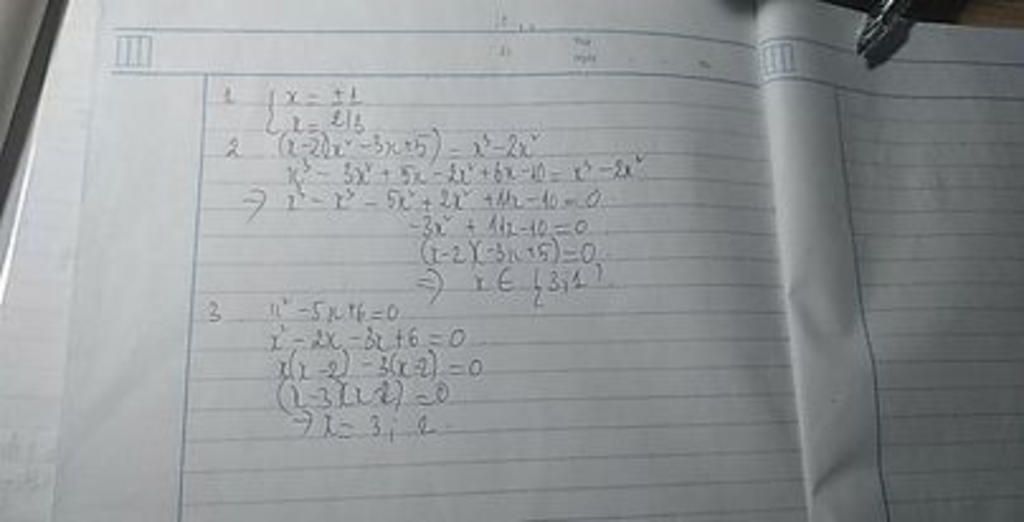 1 { x = ±1
x = 2/3
2 (x-2)(x² -3x+5) = x³-2x²
x³ - 3x² + 5x - 2x² + 6x - 10 = x³ - 2x²
→ x³ - x³ - 5x² + 2x² + 11x - 10 = 0
-3x² + 11x - 10 = 0
(x-2)(-3x+5)=0
⇒ x ∈ { 3;1 }
3 x² -5x+6=0
x² - 2x - 3x + 6 = 0
x(x-2) -3(x-2) = 0
(x-3)(x-2) = 0
→ x = 3; 2